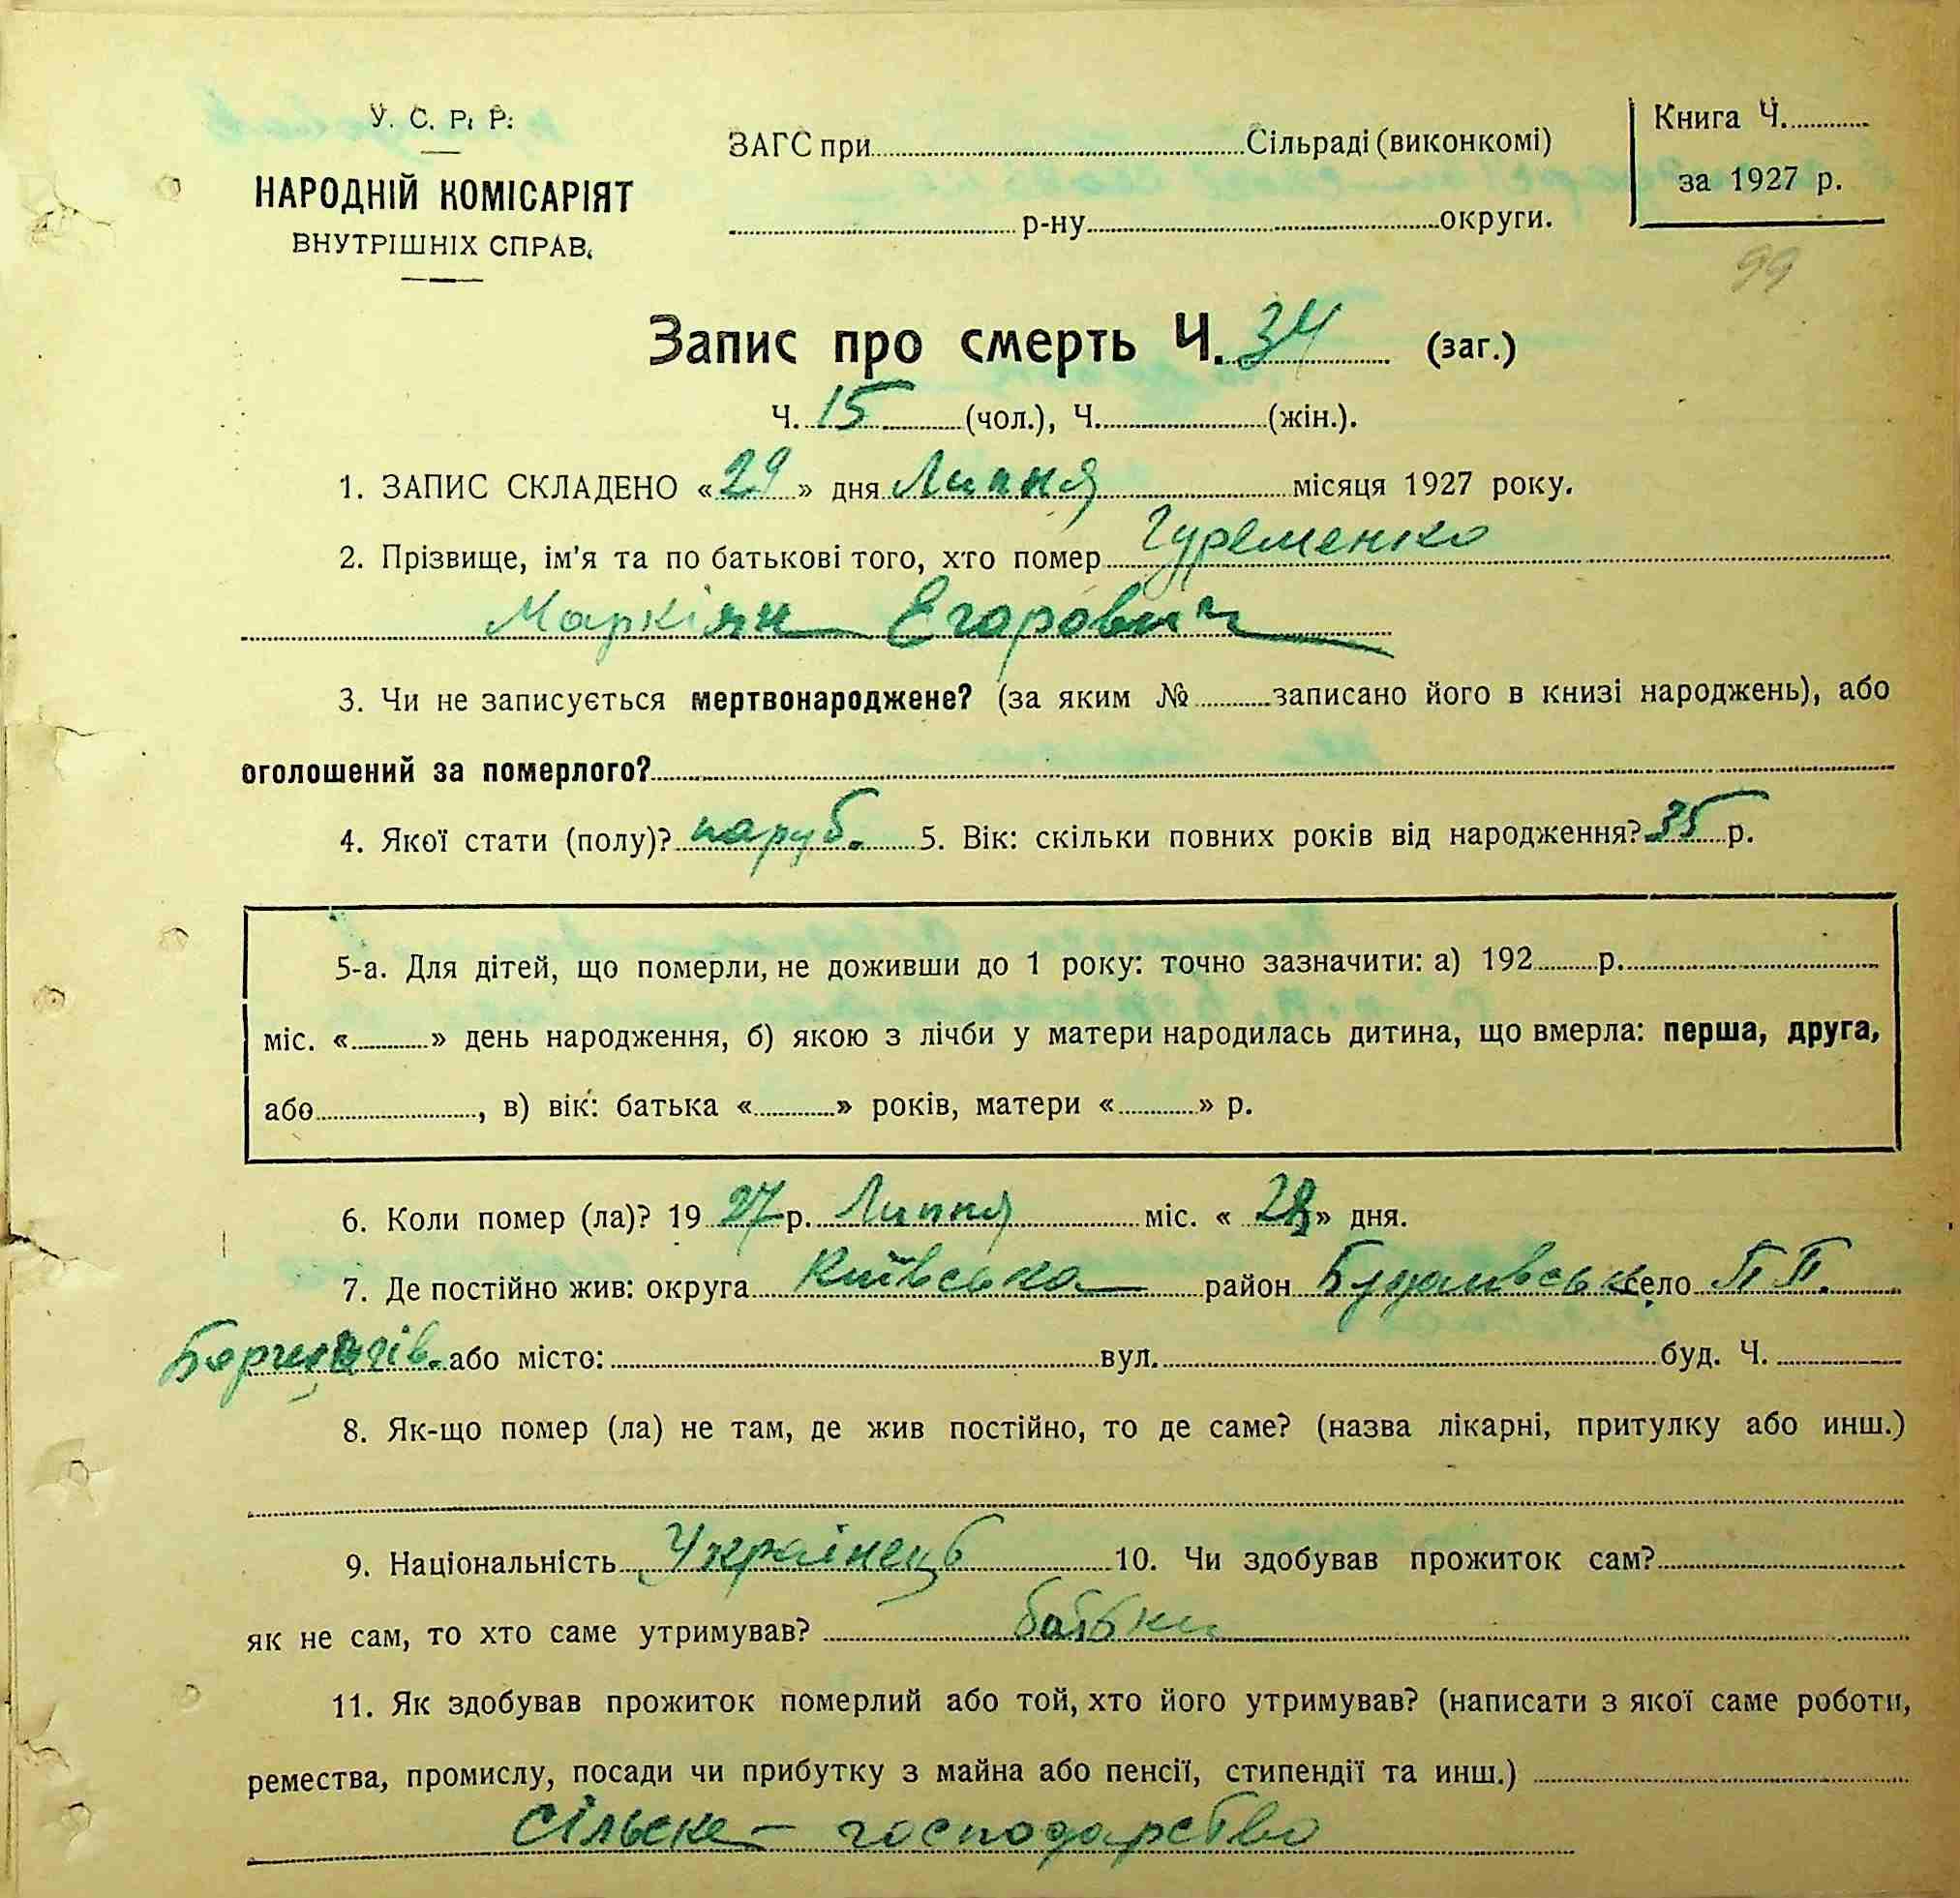 У. С. Р. Р.
НАРОДНІЙ КОМІСАРІЯТ
ВНУТРІШНІХ СПРАВ.
ЗАГС при Сільраді (виконкомі)
р-ну округи.
Книга Ч.
за 1927 р.
99
Запис про смерть Ч. 34 (заг.)
Ч. 15 (чол.), Ч. (жін.).
1. ЗАПИС СКЛАДЕНО «29» дня Липня місяця 1927 року.
2. Прізвище, ім'я та по батькові того, хто помер Гуременко
Маркіян Егорович
3. Чи не записується мертвонароджене? (за яким № записано його в книзі народжень), або
оголошений за померлого?
4. Якої стати (полу)? паруб. 5. Вік: скільки повних років від народження? 35 р.
5-а. Для дітей, що померли, не доживши до 1 року: точно зазначити: а) 192 р.
міс. « » день народження, б) якою з лічби у матери народилась дитина, що вмерла: перша, друга,
або , в) вік: батька « » років, матери « » р.
6. Коли помер (ла)? 1927 р. Липня міс. «28» дня.
7. Де постійно жив: округа Київська район село П П.
Борщагів. або місто: вул. буд. Ч.
8. Як-що помер (ла) не там, де жив постійно, то де саме? (назва лікарні, притулку або инш.)
9. Національність Українець 10. Чи здобував прожиток сам?
як не сам, то хто саме утримував? батьки
11. Як здобував прожиток померлий або той, хто його утримував? (написати з якої саме роботи,
ремества, промислу, посади чи прибутку з майна або пенсії, стипендії та инш.)
Сільске - господарство